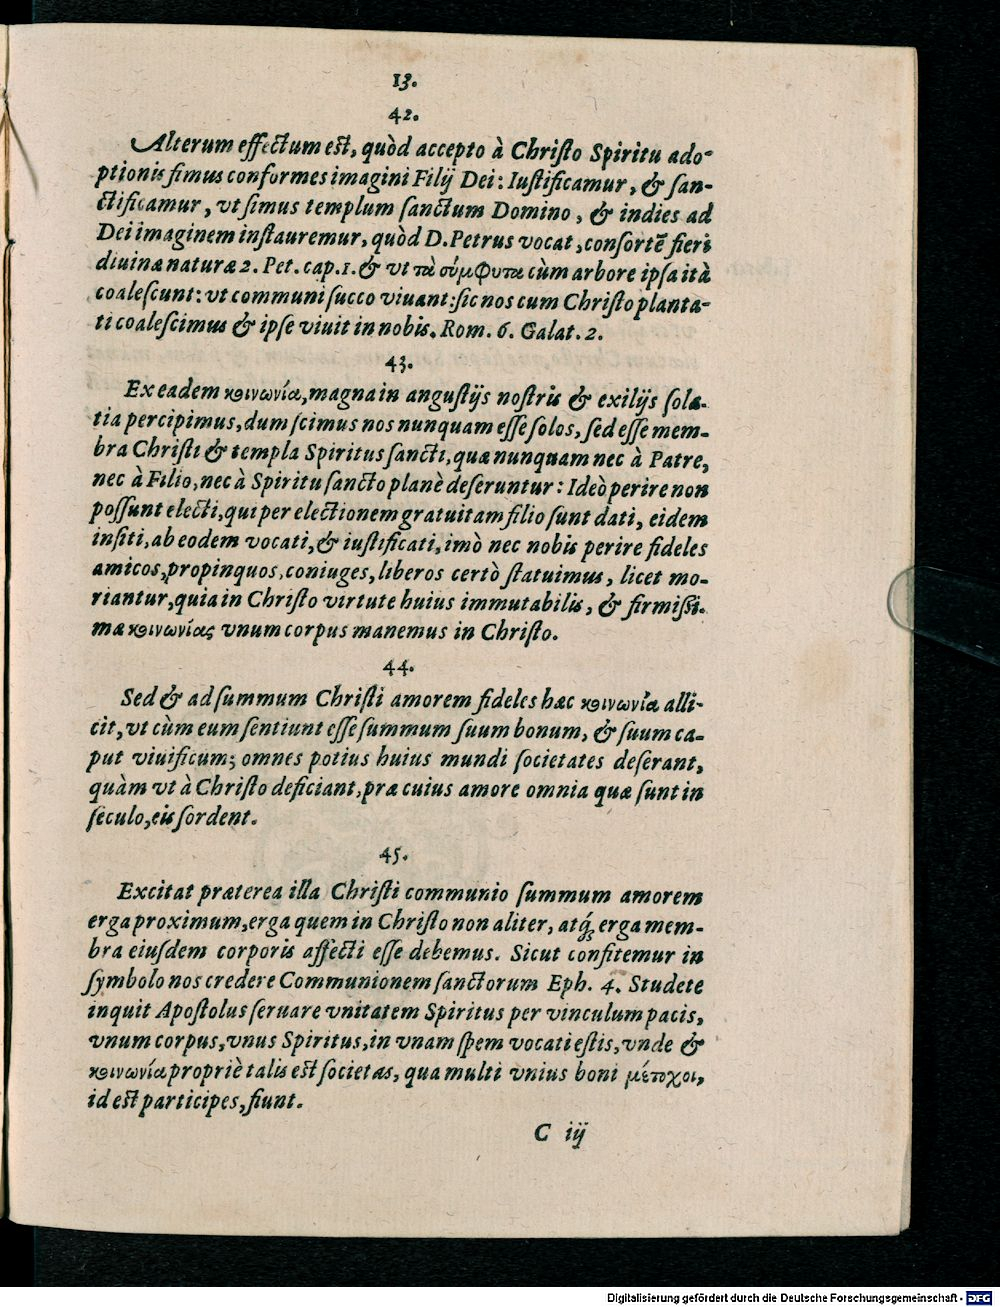 13.
42.
Alterum effectum est, quòd accepto à Christo Spiritu ado-
ptionis simus conformes imagini Filij Dei: Iustificamur, & san-
ctificamur, vt simus templum sanctum Domino, & indies ad
Dei imaginem instauremur, quòd D. Petrus vocat, consortẽ fieri
diuinæ naturæ 2. Pet. cap. 1. & vt τὰ σύμφυτα cùm arbore ipsa ità
coalescunt: vt communi succo viuant: sic nos cum Christo planta-
ti coalescimus & ipse viuit in nobis. Rom. 6. Galat. 2.
43.
Ex eadem κοινωνία, magna in angustijs nostris & exilijs sola-
tia percipimus, dum scimus nos nunquam esse solos, sed esse mem-
bra Christi & templa Spiritus sancti, quæ nunquam nec à Patre,
nec à Filio, nec à Spiritu sancto planè deseruntur: Ideò perire non
possunt electi, qui per electionem gratuitam filio sunt dati, eidem
insiti, ab eodem vocati, & iustificati, imò nec nobis perire fideles
amicos, propinquos, coniuges, liberos certò statuimus, licet mo-
riantur, quia in Christo virtute huius immutabilis, & firmissi-
mæ κοινωνίας vnum corpus manemus in Christo.
44.
Sed & ad summum Christi amorem fideles hæc κοινωνία alli-
cit, vt cùm eum sentiunt esse summum suum bonum, & suum ca-
put viuificum; omnes potius huius mundi societates deserant,
quàm vt à Christo deficiant, præ cuius amore omnia quæ sunt in
seculo, eis sordent.
45.
Excitat præterea illa Christi communio summum amorem
erga proximum, erga quem in Christo non aliter, atq́; erga mem-
bra eiusdem corporis affecti esse debemus. Sicut confitemur in
symbolo nos credere Communionem sanctorum Eph. 4. Studete
inquit Apostolus seruare vnitatem Spiritus per vinculum pacis,
vnum corpus, vnus Spiritus, in vnam spem vocati estis, vnde &
κοινωνία propriè talis est societas, qua multi vnius boni μέτοχοι,
id est participes, fiunt.
C iij
Digitalisierung gefördert durch die Deutsche Forschungsgemeinschaft - DFG